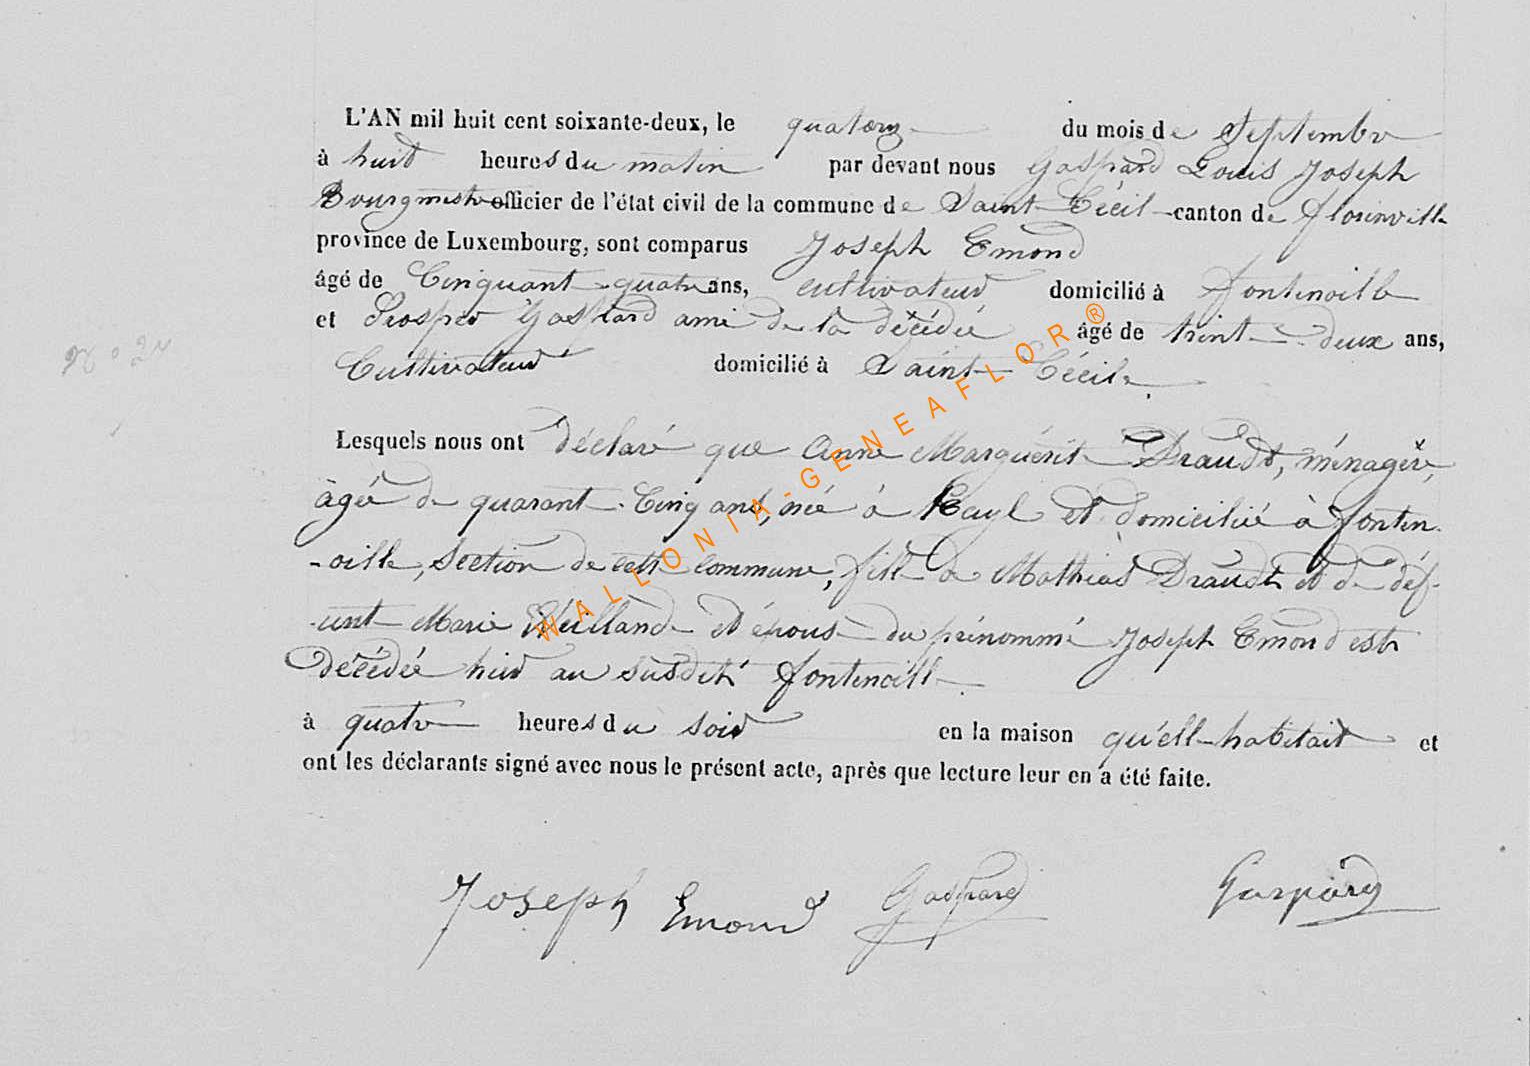 L'AN mil huit cent soixante-deux, le quatorze du mois de Septembre
à huit heures du matin par devant nous Gaspard Louis Joseph
Bourgmestre officier de l'état civil de la commune de Saint Cécile canton de florinville
province de Luxembourg, sont comparus Joseph Emond
âgé de Cinquante-quatre ans, cultivateur domicilié à fontenoille
et Prosper Gaspard ami de la décédée âgé de trente-deux ans,
Cultivateur domicilié à Saint Cécile
N° 24
Lesquels nous ont déclaré que Anne Marguérite Draudt, ménagère,
âgée de quarante-Cinq ans, née à Kayl et domiciliée à fonten-
-oille, section de cette commune, fille de Mathias Draudt et de déf-
-unte Marie Weillande et épouse du prénommé Joseph Emond est
décédée hier au susdit fontenoille
à quatre heures du soir en la maison qu'elle habitait et
ont les déclarants signé avec nous le présent acte, après que lecture leur en a été faite.
Joseph Emond Gaspard Gaspard
WALLONIA-GENEAFLOR®